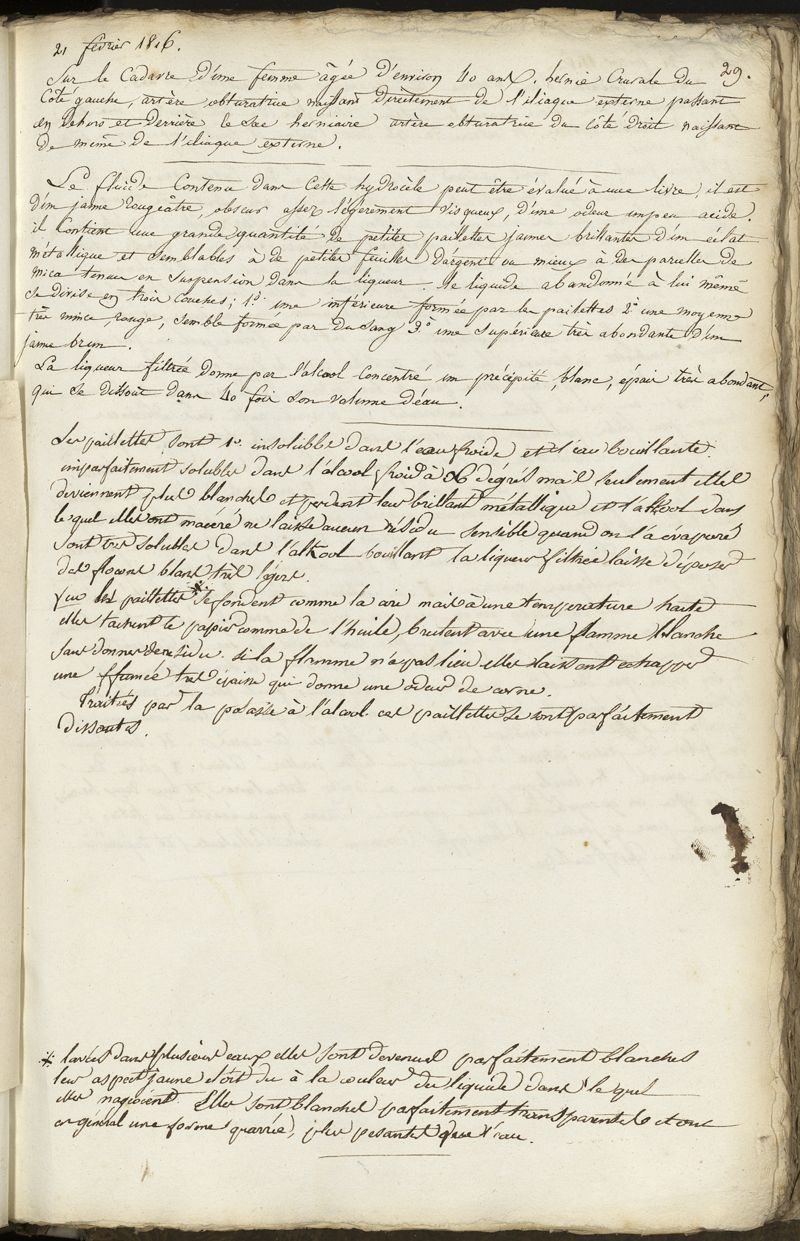 21 février 1816.
29.
Sur le Cadavre d'une femme âgée d'environ 40 ans. hernie Crurale du
Coté gauche, artère obturatrice naissant directement de l'iliaque externe passant
en dehors et derrière le Sac herniaire artère obturatrice du côté droit naissant
de même de l'iliaque externe.
Le fluide Contenu dans Cette hydrocèle peut être évalué à une livre, il est
d'un jaune rougeâtre, obscur assez légèrement visqueux, d'une odeur un peu acide.
il Contient une grande quantité de petites paillettes jaunes brillantes d'un éclat
métallique et semblables à de petites feuilles d'argent ou mieux à des parcelles de
mica tenues en suspension dans la liqueur. Ce liquide abandonné à lui même
se divise en trois Couches; 1° une inférieure formée par les paillettes 2° une moyenne
très mince, rouge, semble formée par du Sang 3° une Supérieure très abondante d'un
jaune brun.
La liqueur filtrée donne par l'alcool Concentré un précipité, blanc, épais très abondant,
qui se dissout dans 40 fois son volume d'eau.
Les paillettes sont 1° insolubles dans l'eau froide et l'eau bouillante.
imparfaitement solubles dans l'alcool froid à 36 dégrés mais seulement elles
deviennent plus blanches et perdent leur brillant métallique et l'alkool dans
le quel elles ont maceré ne laisse aucun résidu sensible quand on l'a évaporé
sont très solubles dans l'alkool bouillant la liqueur filtrée laisse déposer
des flocons blancs très légers.
les paillettes * se fondent comme la cire mais à une temperature haute
elles tachent le papier comme de l'huile, brulent avec une flamme blanche
sans donner de residu. si la flamme n'a pas lieu elles laissent echapper
une fumée très épaisse qui donne une odeur de corne.
Traités par la potasse à l'alcool ces paillettes se sont parfaitement
dissoutes.
* lavées dans plusieurs eaux elles sont devenues parfaitement blanches
leur aspect jaune etoit du à la couleur du liquide dans le quel
elles nageoient. Elles sont blanches parfaitement transparentes et ont
en général une forme quarrée, plus pesantes que l'eau.